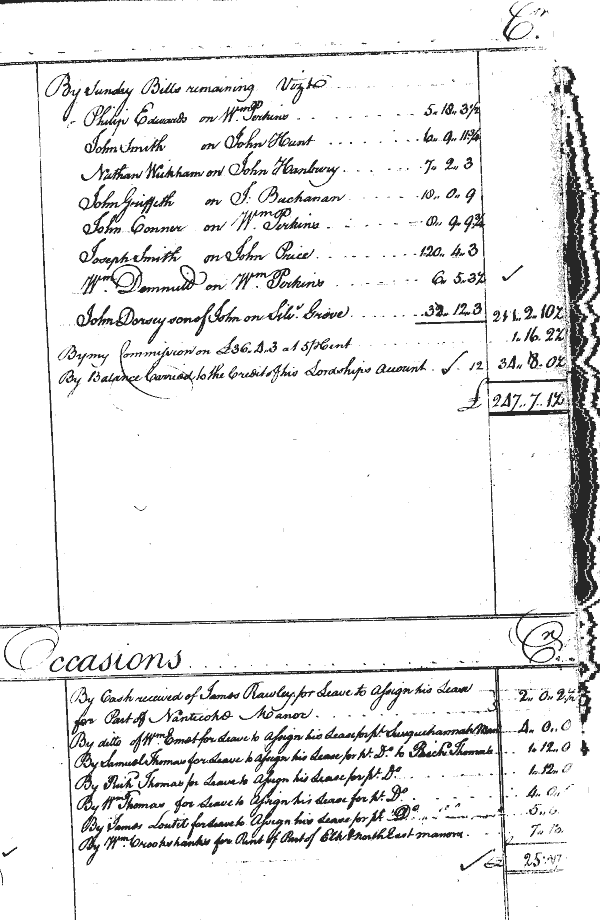 Cr.
By Sunday Bills remaining Vizt
Philip Edwards on Wm Perkins 5.. 18.. 3½
John Smith on John Hunt 6.. 9.. 11¾
Nathan Wickham on John Hanbury 7.. 2.. 3
John Griffith on J. Buchanan 18.. 0.. 9
John Conner on Wm Perkins
Joseph Smith on John Price 120.. 4.. 3
Wm on Wm Perkins 6.. 5.. 3½ ✓
John Dorsey son of John on Silvr Grove 32.. 12.. 3 211.. 2.. 10½
1.. 16.. 2½
By my Commission on £36.4.3 at 5 P Cent
By Balance Carried to the Credit of his Lordships Account ✓ 12 34.. 8.. 0½
£ 247.. 7.. 1½
Occasions Cr.
By Cash received of James Rawley for Leave to Assign his Lease
for Part of Nanticoke Manor 2.. 0..
By ditto of Wm Emet for Leave to Assign his Lease for pt. Susquehannah Man 4.. 0.. 0
By Samuel Thomas for Leave to Assign his Lease for pt. Do. to Thomas 1.. 12.. 0
By Richd. Thomas for Leave to Assign his Lease for pt. Do 1.. 12.. 0
By Wm Thomas for Leave to Assign his Lease for pt. Do 4.. 0..
By James Loutit for Leave to Assign his Lease for pt. Do 5..
By Wm Crookshanks for Rent of Part of Elk & North East manors. 7..
✓ £ 25..